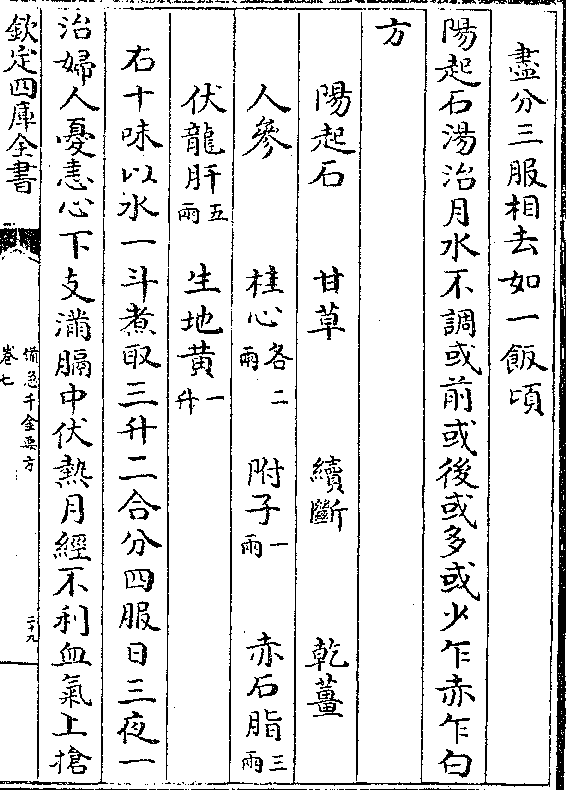 盡分三服相去如一飯頃
陽起石湯治月水不調或前或後或多或少乍赤乍白
方
陽起石 甘草 續斷 乾薑
人參 桂心各二兩 附子一兩 赤石脂三兩
伏龍肝五兩 生地黄一升
右十味以水一斗煮取三升二合分四服日三夜一
治婦人憂恚心下支滿膈中伏熱月經不利血氣上搶
欽定四庫全書
備急千金要方
卷七
二十九